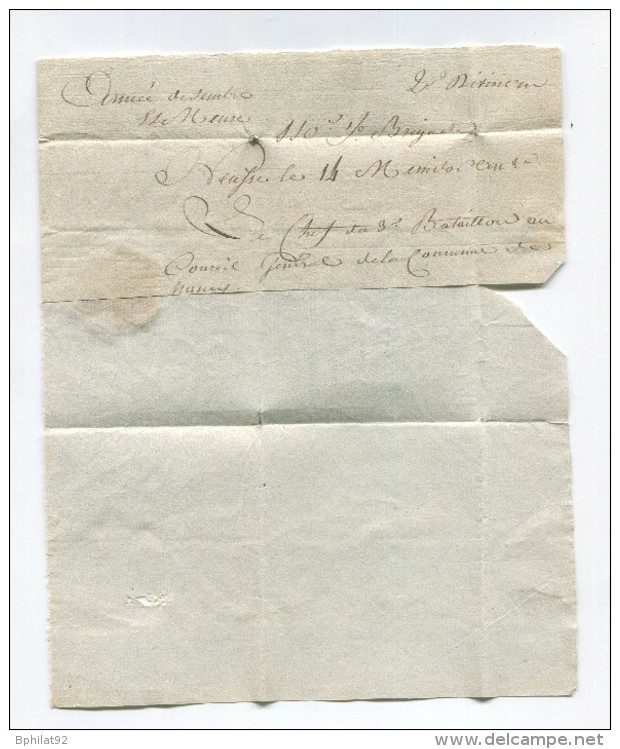 Armée de sambre 2e Division
Et Meuse
110e 1/2 Brigade
Neusse le 14 Nivôse an 3e
Le Chef du 3e Bataillon au
Conseil Général de la Commune de
Nancy.
Bphilat92
www.delcampe.net